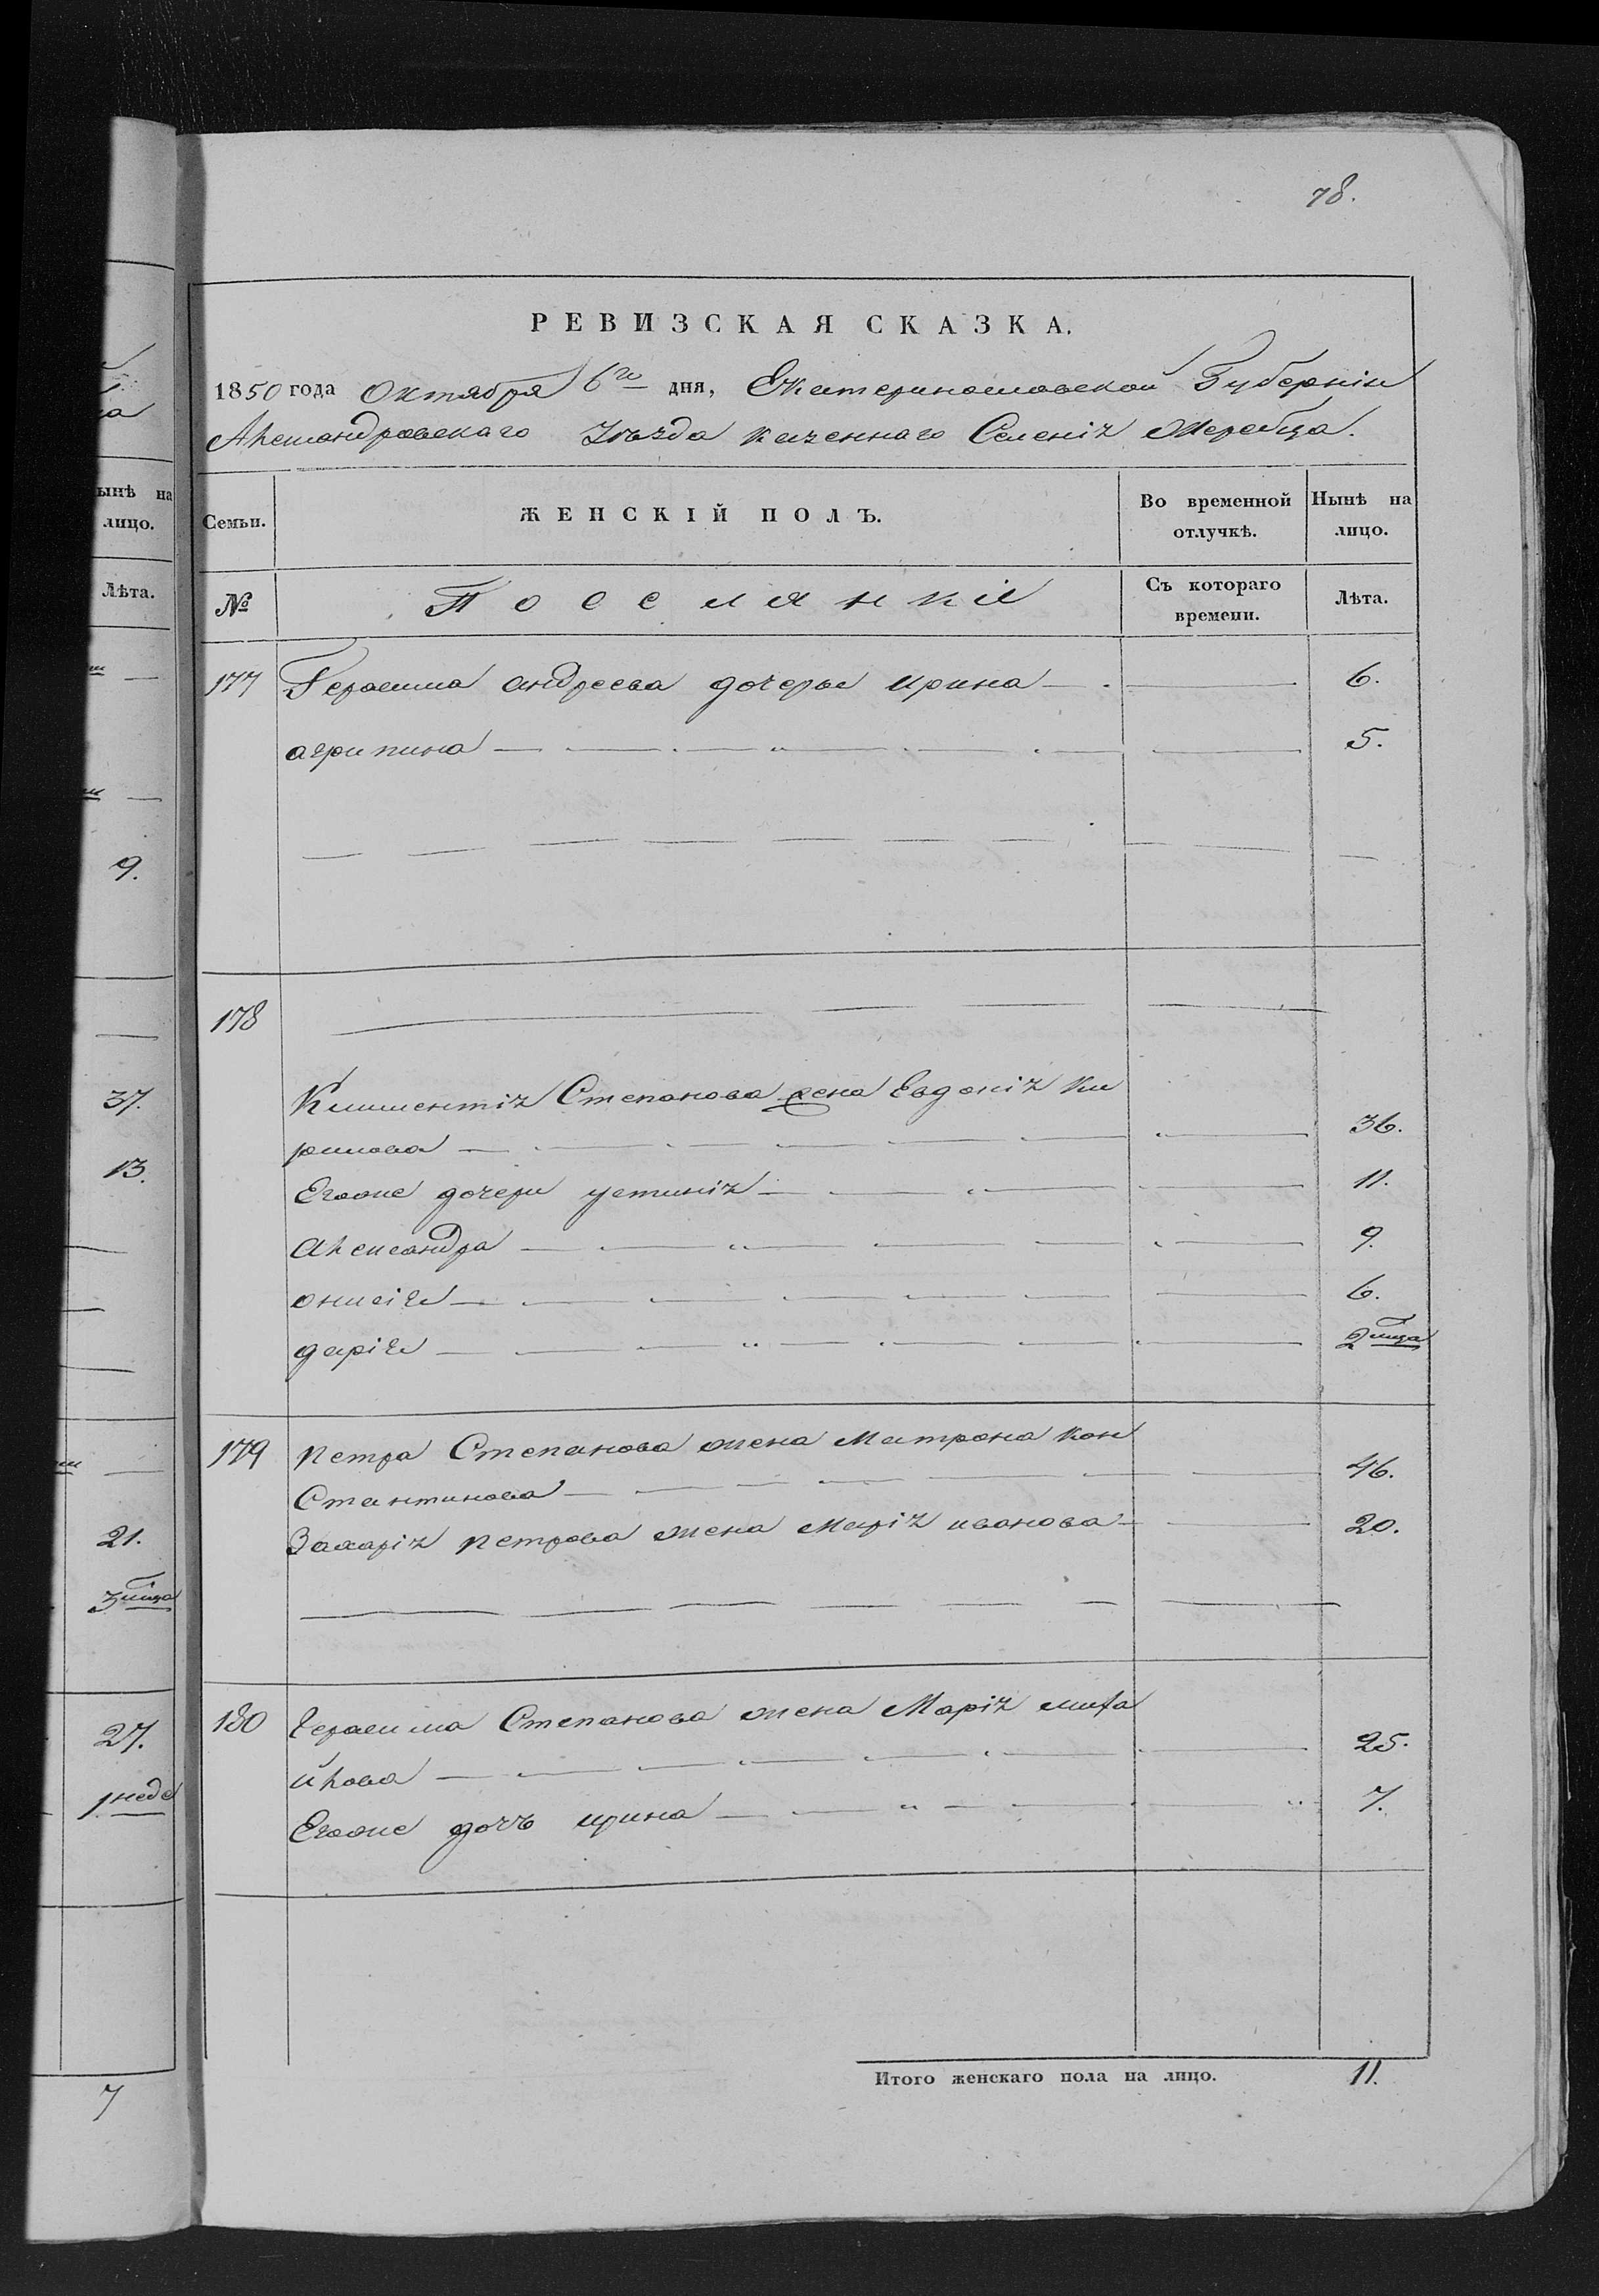 78.
РЕВИЗСКАЯ СКАЗКА.
1850 года Октября 6го дня, Екатеринославской Губерніи
Александровскаго Уѣзда казеннаго Селенія Жеребца.
Семьи. ЖЕНСКІЙ ПОЛЪ. Во временной отлучкѣ. Нынѣ на лицо.
№ Посселянкіе Съ котораго времени. Лѣта.
177 Герасима андреева дочерье ирина 6.
агрипина 5.
178
Климентія Степанова жена Евдокія Ки
рилова 36.
Егоже дочери устинія 11.
Александра 9.
онисія 6.
дарія 2 мца
179 петра Степанова жена Матрона кон
Стантинова 46.
Захарія петрова жена марія иванова 20.
180 герасима Степанова жена Марія миха
йлова 25.
Егоже дочъ ирина 7.
Итого женскаго пола на лицо. 11.
ынѣ на
лицо.
Лѣта.
9.
37.
13.
21.
3 мца
27.
1 неде
7